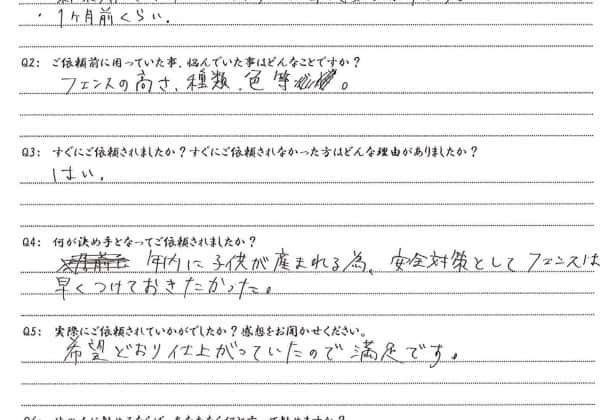 ・1ヶ月前くらい.
Q2: ご依頼前に困っていた事、悩んでいた事はどんなことですか？
フェンスの高さ、種類、色等。
Q3: すぐにご依頼されましたか？すぐにご依頼されなかった方はどんな理由がありましたか？
はい.
Q4: 何が決め手となってご依頼されましたか？
年内に子供が産まれる為、安全対策としてフェンスは
早くつけておきたかった。
Q5: 実際にご依頼されていかがでしたか？感想をお聞かせください。
希望どおり仕上がっていたので満足です。